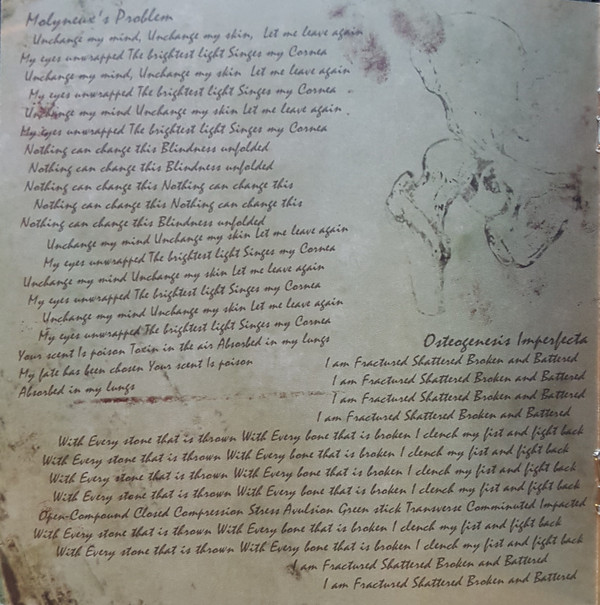 Molyneux's Problem
Unchange my mind, Unchange my skin, Let me leave again
My eyes unwrapped The brightest light Singes my Cornea
Unchange my mind, Unchange my skin Let me leave again
My eyes unwrapped The brightest light Singes my Cornea
Unchange my mind Unchange my skin Let me leave again
My eyes unwrapped The brightest light Singes my Cornea
Nothing can change this Blindness unfolded
Nothing can change this Blindness unfolded
Nothing can change this Nothing can change this
Nothing can change this Nothing can change this
Nothing can change this Blindness unfolded
Unchange my mind Unchange my skin Let me leave again
My eyes unwrapped The brightest light Singes my Cornea
Unchange my mind Unchange my skin Let me leave again
My eyes unwrapped The brightest light Singes my Cornea
Unchange my mind Unchange my skin Let me leave again
My eyes unwrapped The brightest light Singes my Cornea
Your scent Is poison Toxin in the air Absorbed in my lungs
My fate has been chosen Your scent Is poison
Absorbed in my lungs
Osteogenesis Imperfecta
I am Fractured Shattered Broken and Battered
I am Fractured Shattered Broken and Battered
I am Fractured Shattered Broken and Battered
I am Fractured Shattered Broken and Battered
With Every stone that is thrown With Every bone that is broken I clench my fist and fight back
With Every stone that is thrown With Every bone that is broken I clench my fist and fight back
With Every stone that is thrown With Every bone that is broken I clench my fist and fight back
With Every stone that is thrown With Every bone that is broken I clench my fist and fight back
Open-Compound Closed Compression Stress Avulsion Green stick Transverse Comminuted Impacted
With Every stone that is thrown With Every bone that is broken I clench my fist and fight back
With Every stone that is thrown With Every bone that is broken I clench my fist and fight back
I am Fractured Shattered Broken and Battered
I am Fractured Shattered Broken and Battered